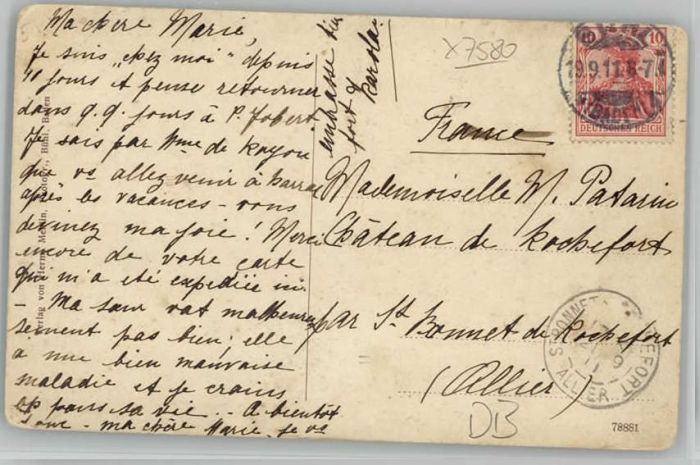 Ma chère Marie,
Je suis "chez moi" depuis
11 jours et pense retourner
dans q.q. jours à P. Jobert
Je sais par Mme de
que vs allez venir à
après les vacances - vous
devinez ma joie! Merci
encore de votre carte
qui m'a été expédiée ici.
- Ma sœur vat malheureu
sement pas bien; elle
a une bien mauvaise
maladie et je crains
sa vie.. - A bientôt
ma chère Marie, je vs
embrasse bien
fort
Karola
X7580
10 10
19.9.11.6-7
BADEN
DEUTSCHES REICH
France
Mademoiselle M. Patarin
Château de Rochefort
par St Bonnet de Rochefort
(Allier)
ST BONNET ROCHEFORT
ALLIER
DB
78881
Verlag von Herm. Bühl, Baden